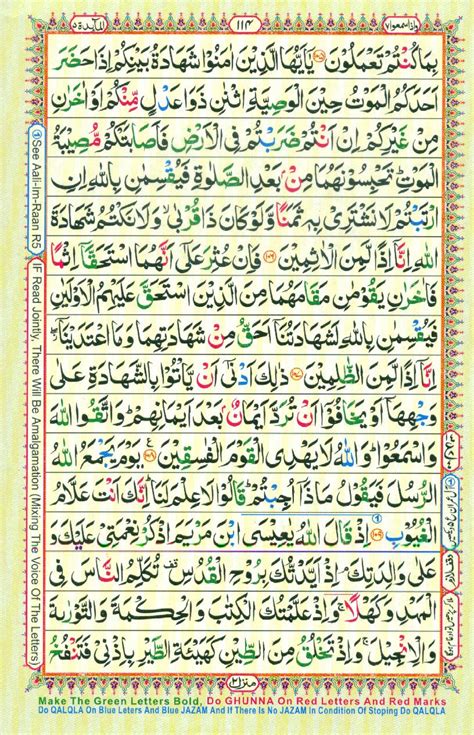 واذا سمعوا ٧ ١١٤ المآئدة ٥
بِمَا كُنْتُمْ تَعْمَلُوْنَ ﴿١٠٥﴾ يٰۤاَيُّهَا الَّذِيْنَ اٰمَنُوْا شَهَادَةُ بَيْنِكُمْ اِذَا حَضَرَ
اَحَدَكُمُ الْمَوْتُ حِيْنَ الْوَصِيَّةِ اثْنٰنِ ذَوَا عَدْلٍ مِّنْكُمْ اَوْ اٰخَرٰنِ
مِنْ غَيْرِكُمْ اِنْ اَنْتُمْ ضَرَبْتُمْ فِى الْاَرْضِ فَاَصَابَتْكُمْ مُّصِيْبَةُ
الْمَوْتِؕ تَحْبِسُوْنَهُمَا مِنْۢ بَعْدِ الصَّلٰوةِ فَيُقْسِمٰنِ بِاللّٰهِ اِنِ
ارْتَبْتُمْ لَا نَشْتَرِىْ بِهٖ ثَمَنًا وَّلَوْ كَانَ ذَا قُرْبٰىۙ وَلَا نَكْتُمُ شَهَادَةَ
اللّٰهِ اِنَّاۤ اِذًا لَّمِنَ الْاٰثِمِيْنَ ﴿١٠٦﴾ فَاِنْ عُثِرَ عَلٰٓى اَنَّهُمَا اسْتَحَقَّاۤ اِثْمًا
فَاٰخَرٰنِ يَقُوْمٰنِ مَقَامَهُمَا مِنَ الَّذِيْنَ اسْتَحَقَّ عَلَيْهِمُ الْاَوْلَيٰنِ
فَيُقْسِمٰنِ بِاللّٰهِ لَشَهَادَتُنَاۤ اَحَقُّ مِنْ شَهَادَتِهِمَا وَمَا اعْتَدَيْنَاۤ ۖ
اِنَّاۤ اِذًا لَّمِنَ الظّٰلِمِيْنَ ﴿١٠٧﴾ ذٰلِكَ اَدْنٰٓى اَنْ يَّاْتُوْا بِالشَّهَادَةِ عَلٰى
وَجْهِهَاۤ اَوْ يَخَافُوْۤا اَنْ تُرَدَّ اَيْمَانٌۢ بَعْدَ اَيْمَانِهِمْؕ وَاتَّقُوا اللّٰهَ
وَاسْمَعُوْاؕ وَاللّٰهُ لَا يَهْدِى الْقَوْمَ الْفٰسِقِيْنَ ﴿١٠٨﴾ يَوْمَ يَجْمَعُ اللّٰهُ
الرُّسُلَ فَيَقُوْلُ مَاذَاۤ اُجِبْتُمْؕ قَالُوْا لَا عِلْمَ لَنَاؕ اِنَّكَ اَنْتَ عَلَّامُ
الْغُيُوْبِ ﴿١٠٩﴾ اِذْ قَالَ اللّٰهُ يٰعِيْسَى ابْنَ مَرْيَمَ اذْكُرْ نِعْمَتِىْ عَلَيْكَ وَ
عَلٰى وَالِدَتِكَۘ اِذْ اَيَّدْتُّكَ بِرُوْحِ الْقُدُسِ تُكَلِّمُ النَّاسَ فِى
الْمَهْدِ وَكَهْلًاۚ وَاِذْ عَلَّمْتُكَ الْكِتٰبَ وَالْحِكْمَةَ وَالتَّوْرٰىةَ
وَالْاِنْجِيْلَۚ وَاِذْ تَخْلُقُ مِنَ الطِّيْنِ كَهَيْئَةِ الطَّيْرِ بِاِذْنِىْ فَتَنْفُخُ
منزل ٢
① See Aali-Im-Raan R5 (IF Read Jointly, There Will Be Amalgamation (Mixing The Voice Of The Letters)
Make The Green Letters Bold, Do GHUNNA On Red Letters And Red Marks
Do QALQLA On Blue Leters And Blue JAZAM And If There Is No JAZAM In Condition Of Stoping Do QALQLA